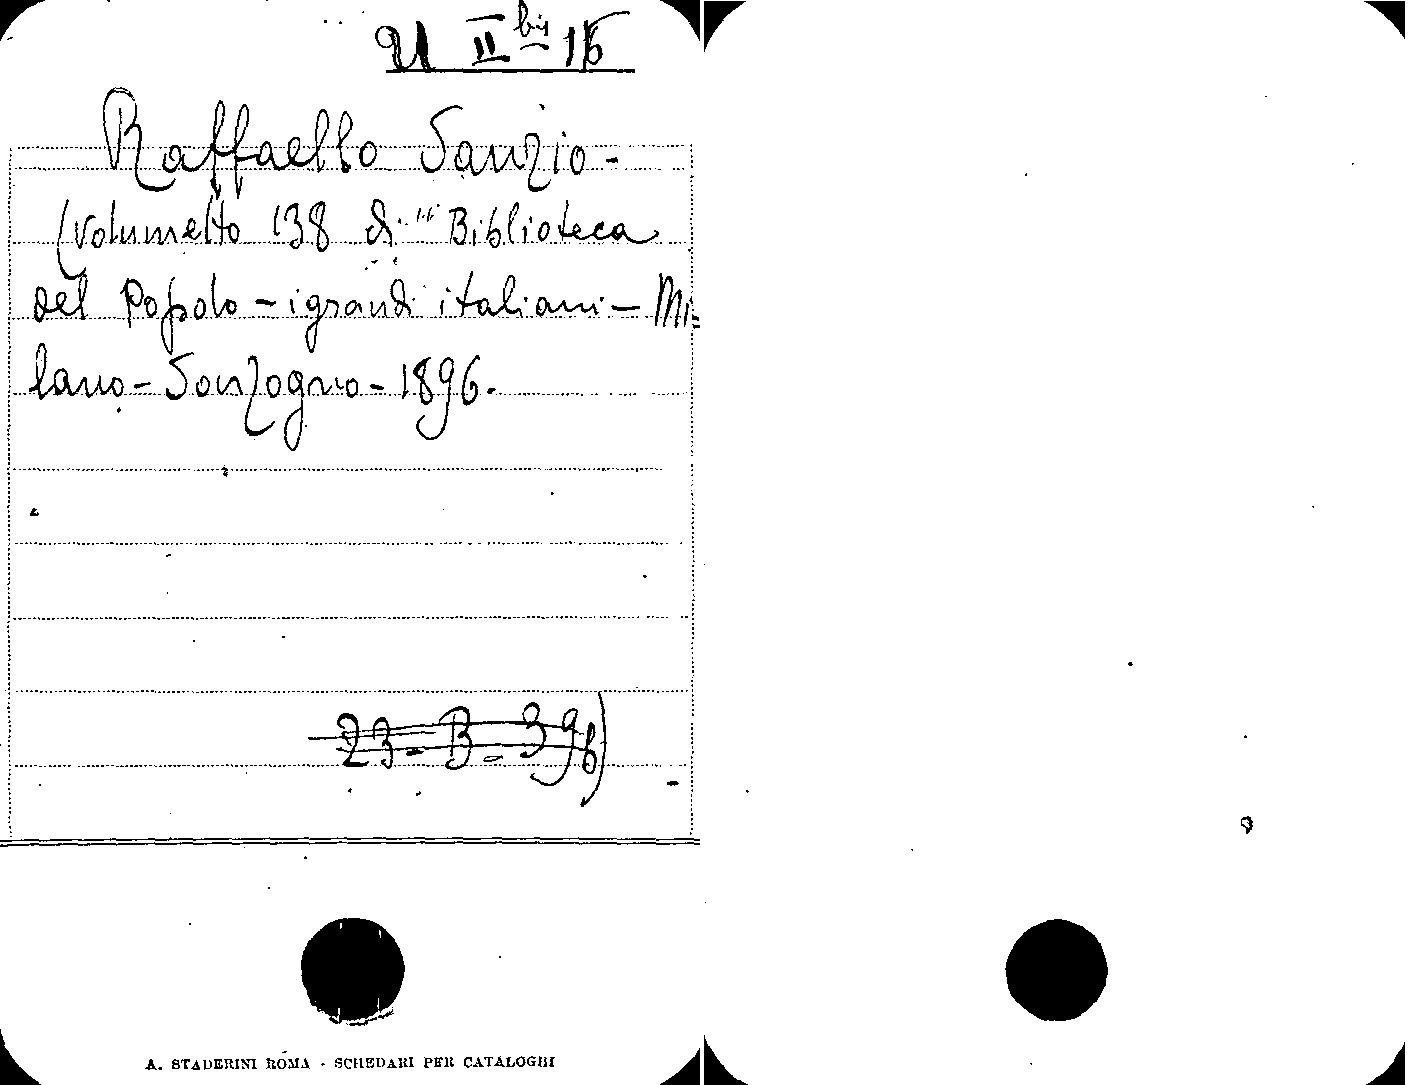 U II bis 16
Raffaello Sanzio -
(Volumetto 138 di "Biblioteca
del Popolo - i grandi italiani - Mi=
lano - Sonzogno - 1896.
23 - B - 396)
A. STADERINI ROMA - SCHEDARI PER CATALOGHI